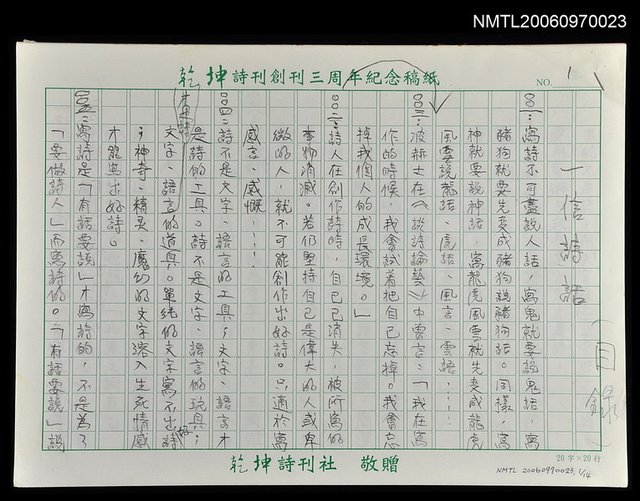 NMTL20060970023
乾坤詩刊創刊三周年紀念稿紙
NO. 1
一信詩話（目錄）
001：寫詩不可盡說人話，寫鬼就要說鬼話，寫
豬狗就要先變成豬狗說豬狗話。同樣，寫
神就要說神話，寫龍虎風雲就先變成龍虎
風雲說龍話、虎話、風言、雲語……
波赫士在《談詩論藝》中曾言：「我在寫
作的時候，我會試著把自己忘掉。我會忘
掉我個人的成長環境。」
002：詩人在創作詩時，自己已消失，被所寫的
事物消滅。若仍堅持自己是偉大的人或卑
微的人，就不可能創作出好詩。只適於寫
感言、感慨……
004：詩不是文字、語言的工具，文字、語言才
是詩的工具。詩不是文字、語言的玩具；
文字、語言的道具。單純的文字寫不出好詩
，神奇、精灵、魔幻的文字溶入生死情感
才能寫出好詩。
005：寫詩是「有話要說」才寫詩的，不是為了
「要做詩人」而寫詩的。「有話要說」說
20字×20行
乾坤詩刊社 敬贈
NMTL 20060970023, 1/14